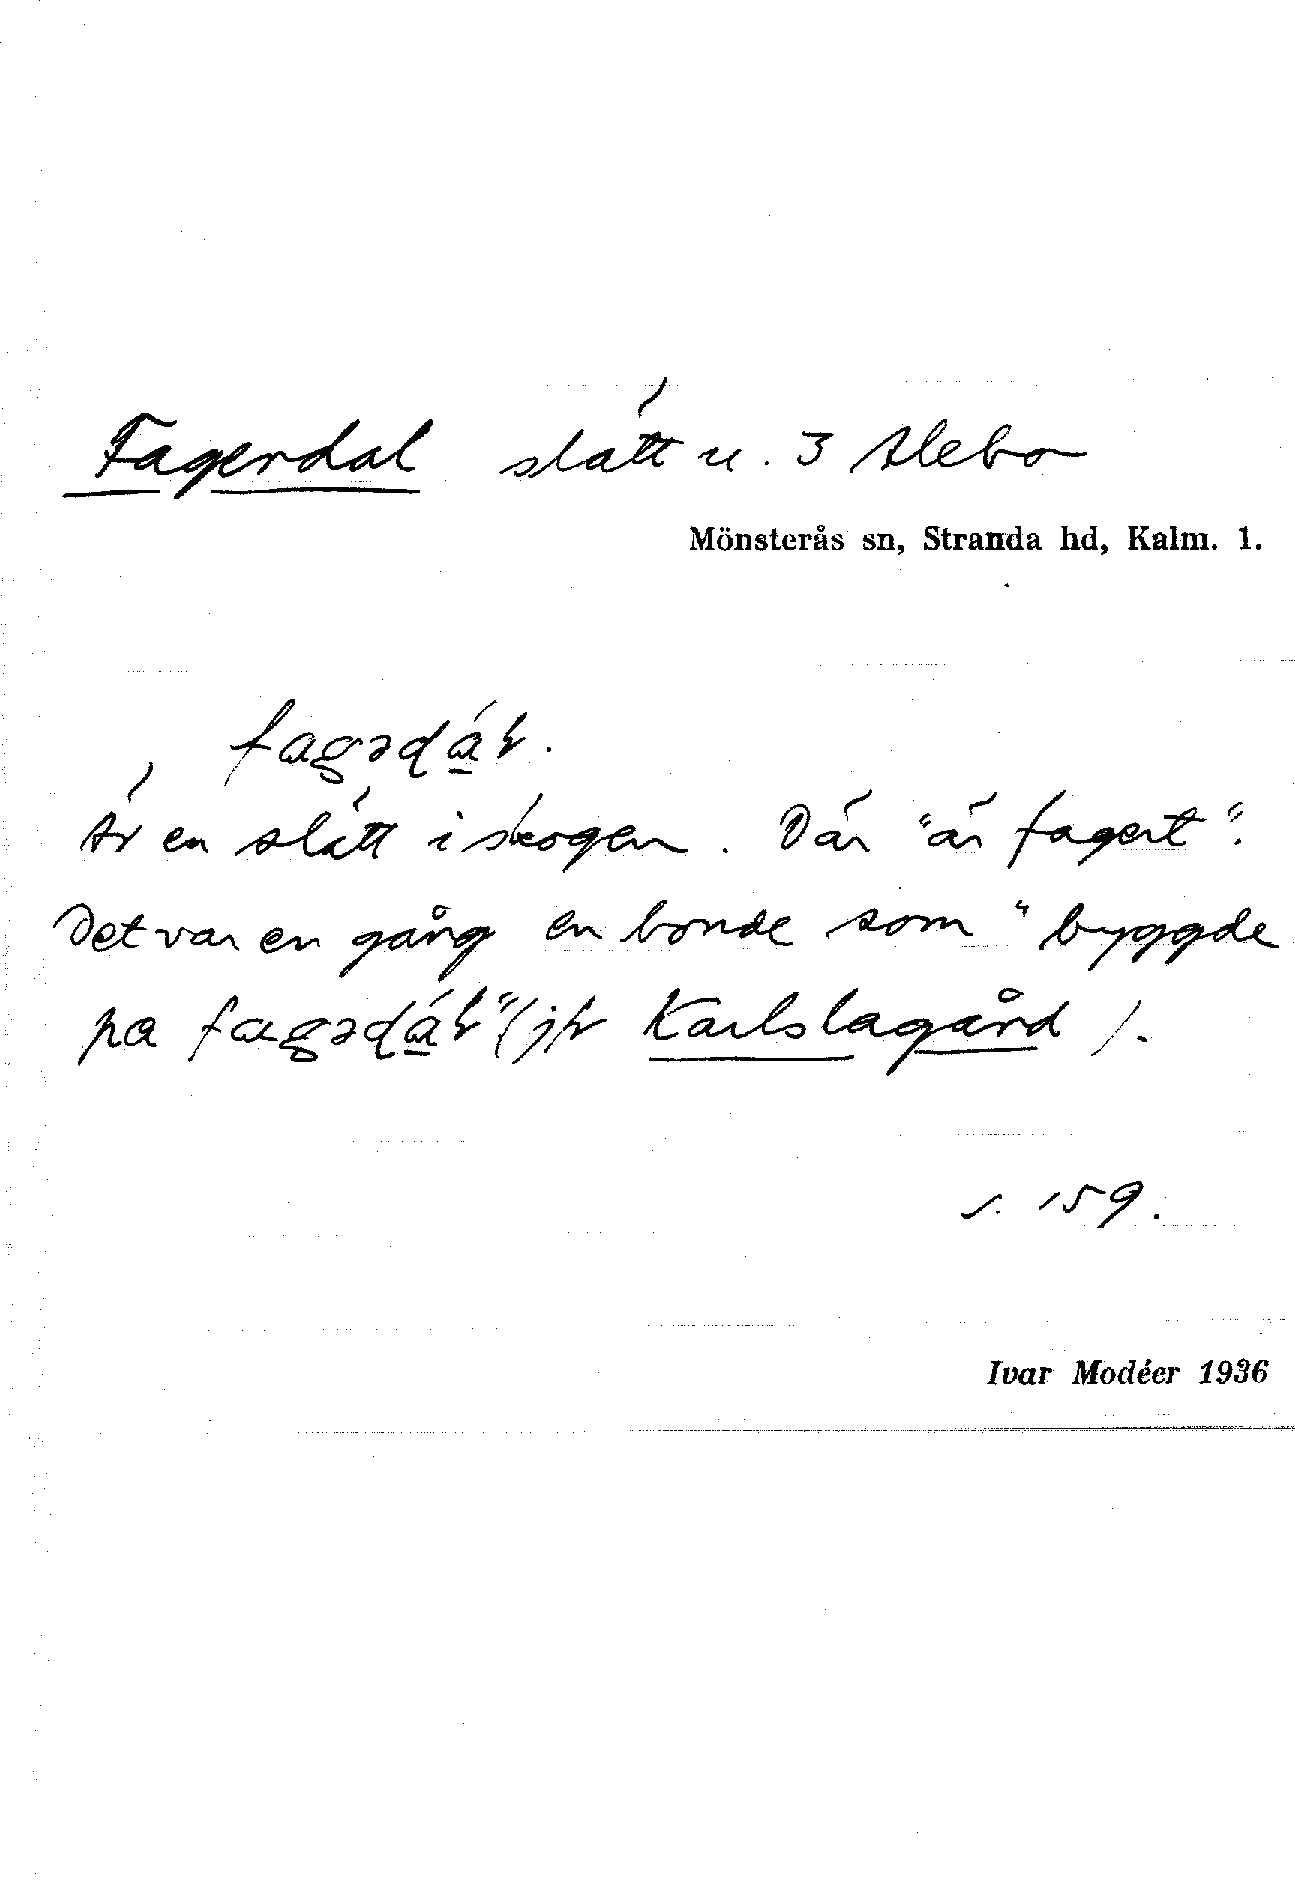 Fagerdal slått u. 3 Alebo
Mönsterås sn, Stranda hd, Kalm. 1.
fagədál.
Är en slått i skogen. Där "är fagert".
Det var en gång en bonde som "byggde
pa fagədál" (jfr Karlslagård).
s. 159.
Ivar Modéer 1936